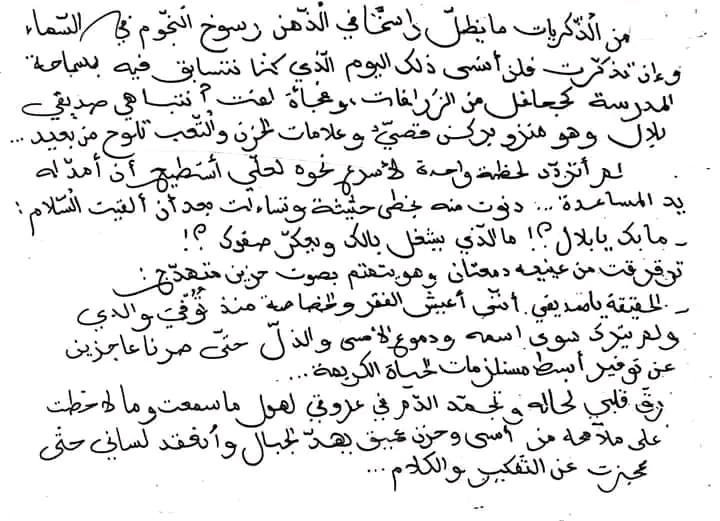 من الذّكريات ما يظلّ راسخا في الذّهن رسوخ النّجوم في السّماء
و إن تذكّرت فلن أنسى ذلك اليوم الّذي كنّا نتسابق فيه بساحة
المدرسة كجحافل من الزّرافات، وفجأة لفت أنتباهي صديقي
بلال وهو منزو بركن قصيّ و علامات الحزن والتّعب تلوح من بعيد ...
لم أتردّد لحظة واحدة لأسرع نحوه لعلّي أستطيع أن أمدّ له
يد المساعدة ... دنوت منه بخطى حثيثة وتساءلت بعد أن ألقيت السّلام :
- ما بك يا بلال ؟! ما الّذي يشغل بالك و يعكّر صفوك ؟!
ترقرقت من عينيه دمعتان وهو يتمتم بصوت حزين متهدّج :
- الحقيقة يا صديقي أنّني أعيش الفقر والخصاصة منذ تُوُفّي والدي
ولم يترك سوى اسمه ودموع الأسى والذلّ حتّى صرنا عاجزين
عن توفير أبسط مستلزمات الحياة الكريمة ...
رقّ قلبي لحاله و تجمّد الدّم في عروقي لهول ما سمعت وما لاحظت
على ملامحه من أسى وحزن عميق يهدّ الجبال و أنعقد لساني حتّى
عجزت عن التّفكير والكلام ...